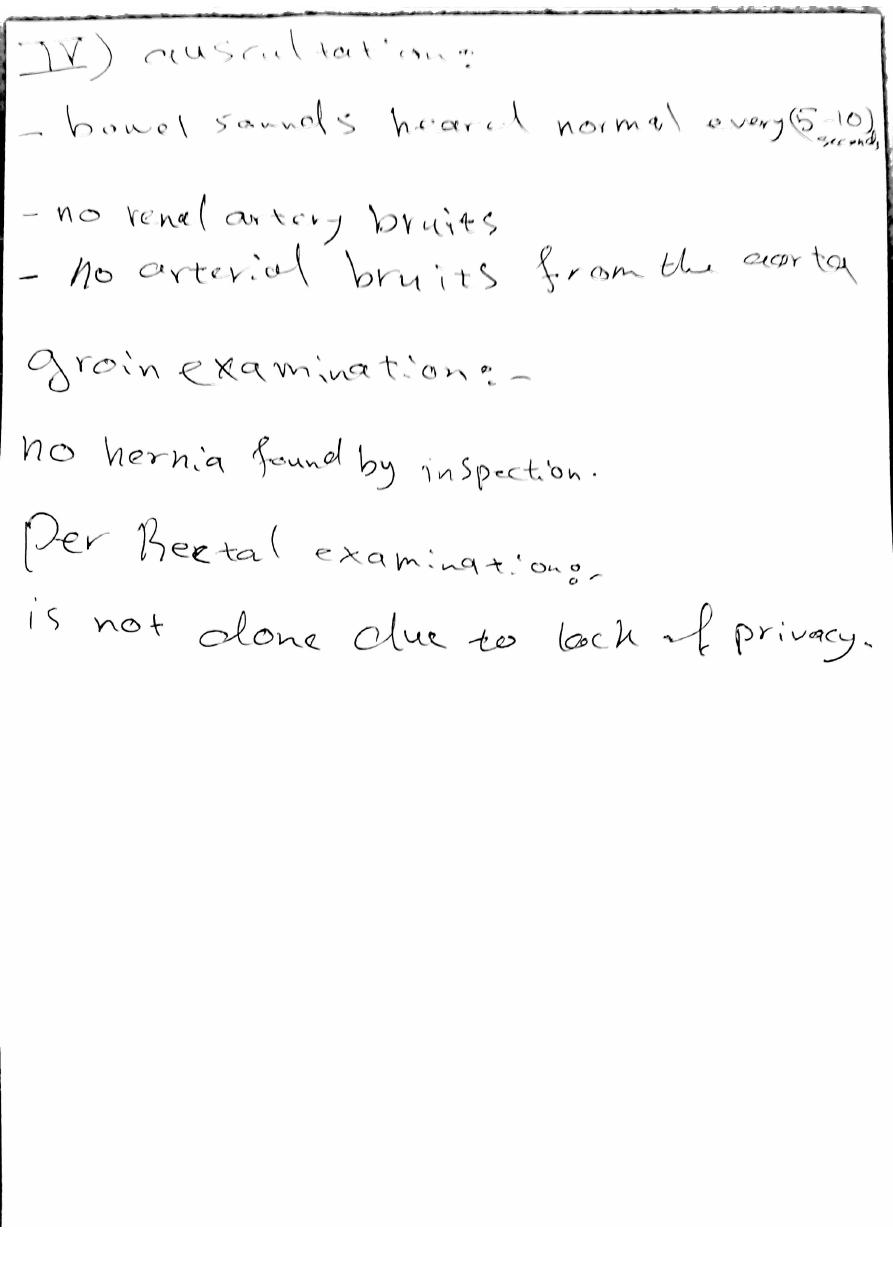 IV) auscultation:
- bowel sounds heared normal every (5-10) seconds
- no renal artery bruits
- no arterial bruits from the aorta
groin examination:-
no hernia found by inspection.
Per Rectal examination:-
is not done due to lack of privacy.